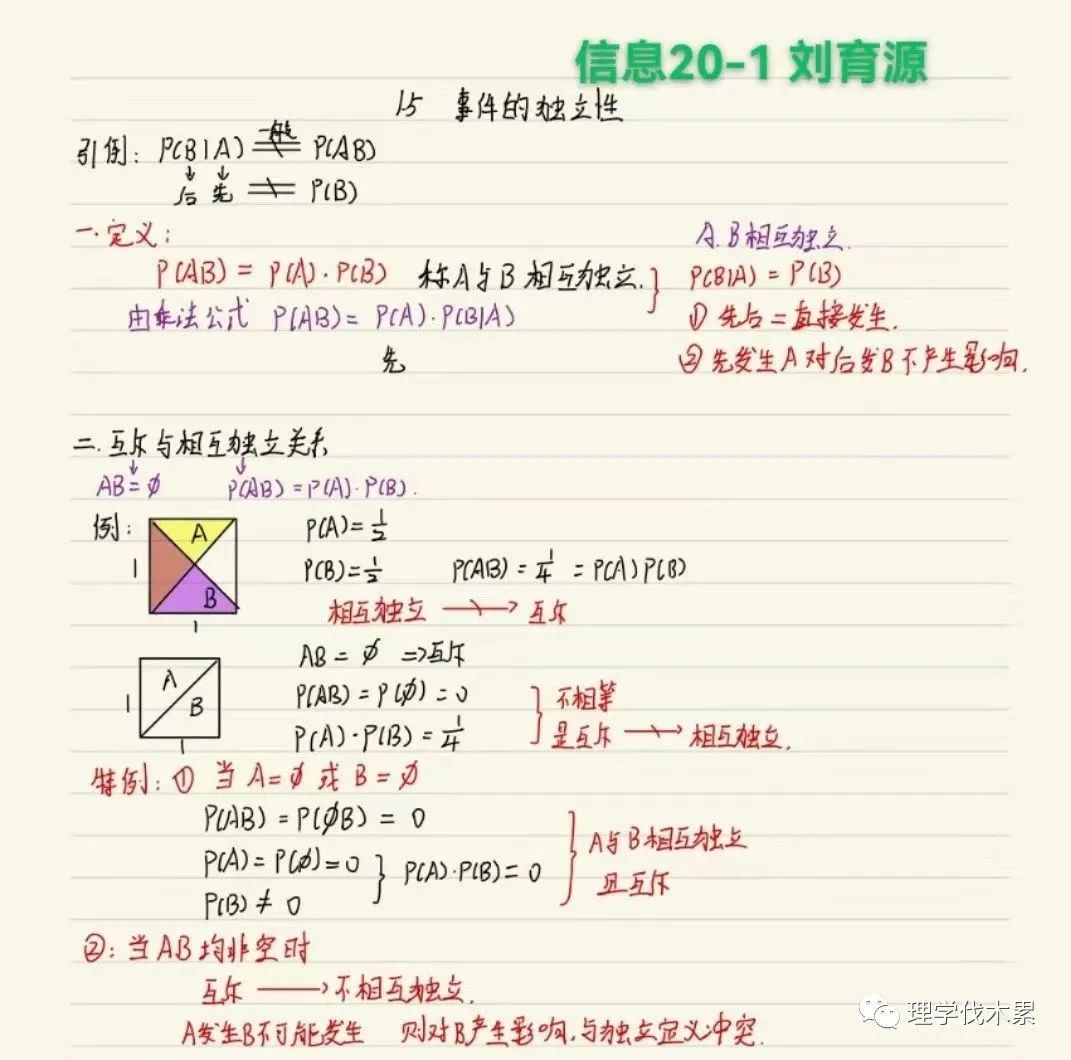 信息20-1 刘育源
15 事件的独立性
引例: P(B|A) ≠ 一般 P(AB)
↓ ↓
后 先 ≠ P(B)
一.定义:
A.B相互独立.
P(AB) = P(A)·P(B) 称A与B相互独立. } P(B|A) = P(B)
由乘法公式 P(AB) = P(A)·P(B|A)
① 先后=直接发生.
先
② 先发生A对后发B不产生影响.
二.互斥与相互独立关系
↓ ↓
AB=∅ P(AB)=P(A)·P(B).
例:
A
B
1
1
P(A)=1/2
P(B)=1/2 P(AB)=1/4 = P(A)P(B)
相互独立 ↛ 互斥
A
B
1
1
AB = ∅ ⇒互斥
P(AB) = P(∅) = 0
P(A)·P(B) = 1/4
} 不相等
是互斥 ↛ 相互独立.
特例: ① 当 A=∅ 或 B=∅
P(AB) = P(∅B) = 0
P(A) = P(∅)=0
P(B) ≠ 0
} P(A)·P(B)=0
} A与B相互独立
且互斥
②: 当AB均非空时
互斥 ⟶ 不相互独立.
A发生B不可能发生 则对B产生影响,与独立定义冲突.
理学伐木累